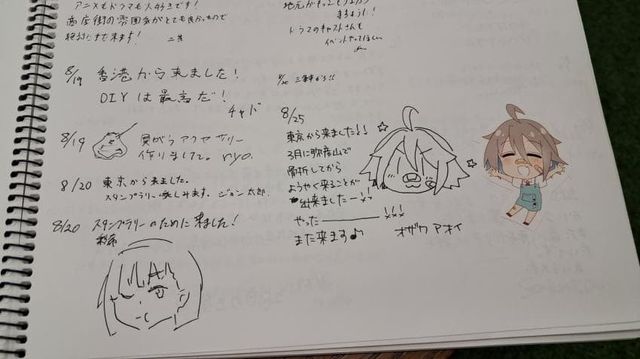 アニメもドラマも大好きです!
商店街の雰囲気がとても良かったので
絶対にまた来ます!
8/19 香港から来ました!
DIYは最高だ!
チャド
8/19 貝がらアクセサリー
作りました。ryo.
8/20 東京から来ました。
スタンプラリー楽しみます。ジョン太郎
8/20 スタンプラリーのために来ました!
ドラマのキャストさんも
イベントやってほしい
8/25
東京から来ました!!
3月に弥彦山で
骨折してから
ようやく来ることが
出来ましたーッ!!
やったー!!!
また来ます♪
オザワ アオイ